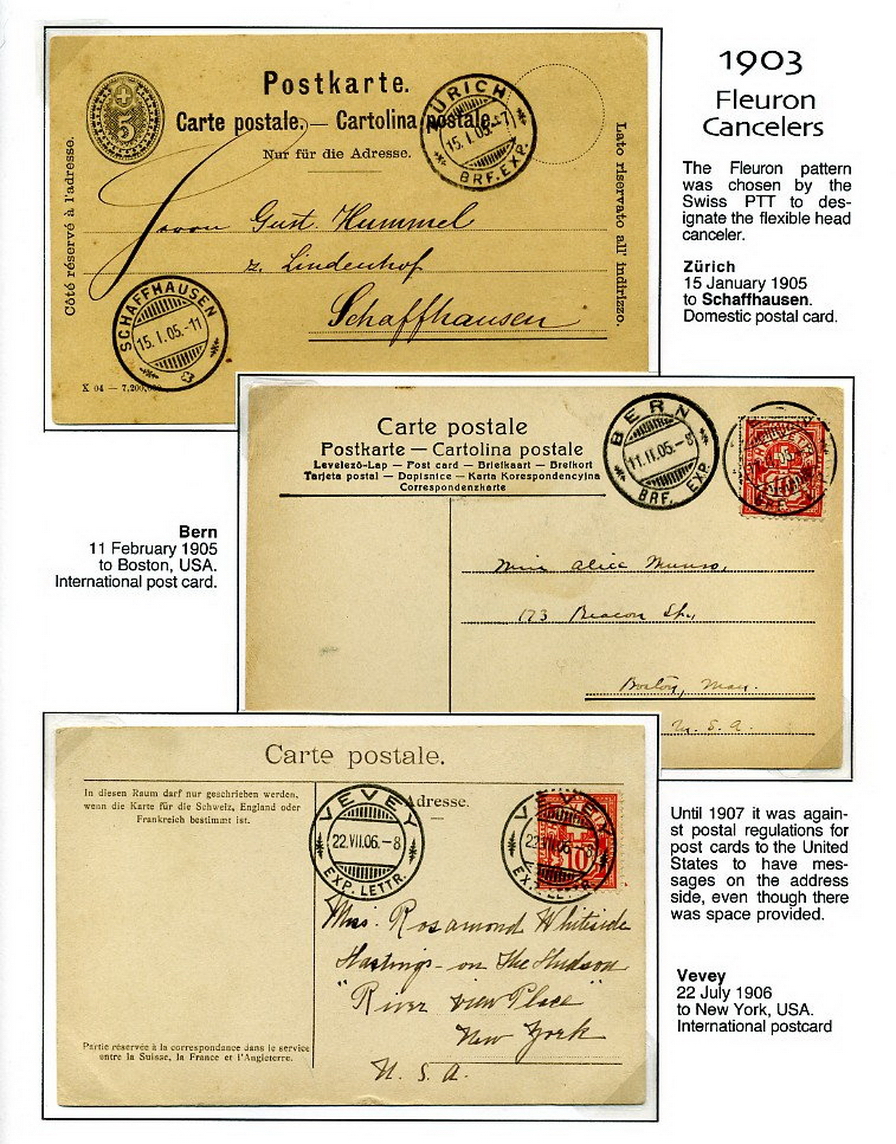 1903
Fleuron
Cancelers
The Fleuron pattern
was chosen by the
Swiss PTT to des-
ignate the flexible head
canceler.
Zürich
15 January 1905
to Schaffhausen.
Domestic postal card.
5
Postkarte.
Carte postale. — Cartolina postale.
Nur für die Adresse.
Côté réservé à l'adresse.
Lato riservato all' indirizzo.
ZÜRICH
15.I.05.-7
BRF. EXP.
Herrn Gust. Hummel
z. Lindenhof
Schaffhausen
SCHAFFHAUSEN
15.I.05.-11
X 04 — 7,200,000
Bern
11 February 1905
to Boston, USA.
International post card.
Carte postale
Postkarte — Cartolina postale
Levelező-Lap — Post card — Briefkaart — Brefkort
Tarjeta postal — Dopisnice — Karta Korespondencyjna
Correspondenzkarte
BERN
11.II.05.-8
BRF. EXP.
HELVETIA
Miss Alice Munro,
173 Beacon St.,
Boston, Mass.
U. S. A.
Carte postale.
In diesen Raum darf nur geschrieben werden,
wenn die Karte für die Schweiz, England oder
Frankreich bestimmt ist.
Adresse.
VEVEY
22.VII.06.-8
EXP. LETTR.
VEVEY
22.VII.06.-8
EXP. LETTR.
10
Miss. Rosamond Whiteside
Hastings-on the Hudson
"River view Place"
New York
U. S. A.
Partie réservée à la correspondance dans le service
entre la Suisse, la France et l'Angleterre.
Until 1907 it was again-
st postal regulations for
post cards to the United
States to have mes-
sages on the address
side, even though there
was space provided.
Vevey
22 July 1906
to New York, USA.
International postcard